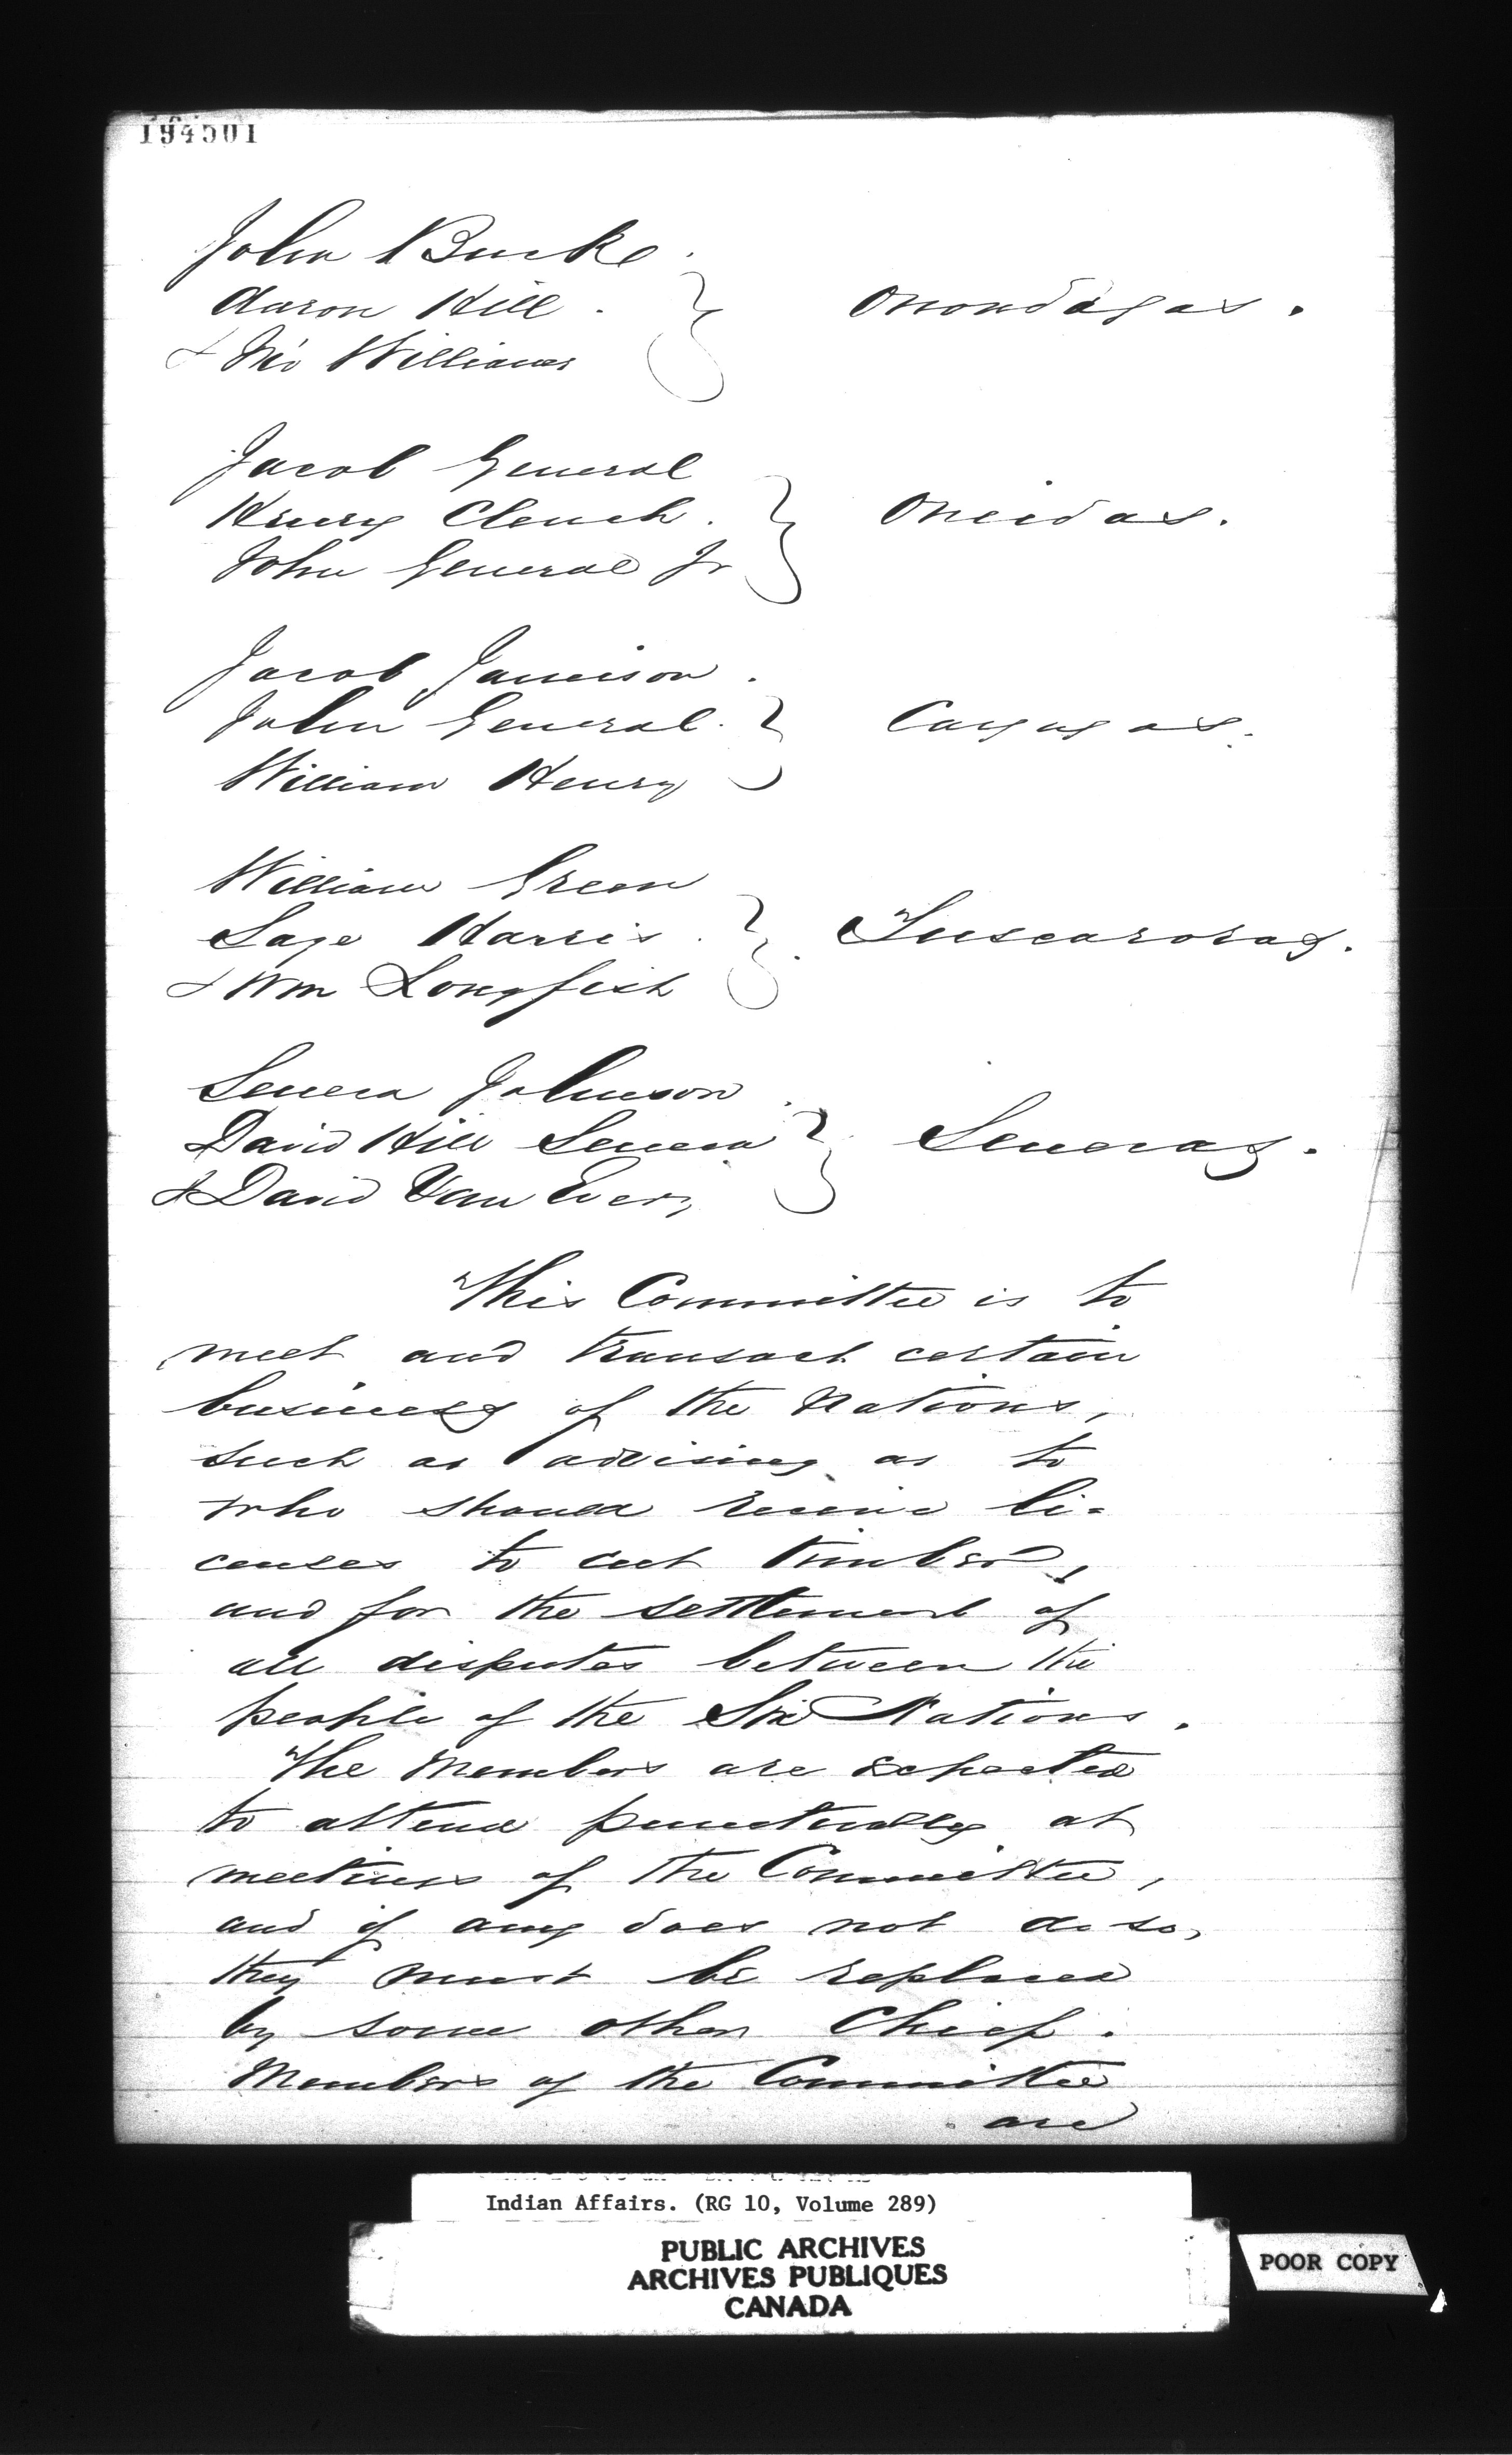 194501
John Buck.
Aaron Hill.
& Jno Williams
Onondagas.
Jacob General
Henry Clench.
John General Jr
Oneidas.
Jacob Jamieson.
John General.
William Henry
Cayugas.
William Green
Sage Harris.
& Wm Longfish
Tuscaroras.
Seneca Johnson.
David Hill Seneca
& David Van Every
Senecas.
This Committee is to
meet and transact certain
business of the Nations,
such as advising as to
who should receive li=
censes to cut timber,
and for the settlement of
all disputes between the
people of the Six Nations.
The Members are expected
to attend punctually at
meetings of the Committee,
and if any does not do so,
they must be replaced
by some other Chief.
Members of the Committee
are
Indian Affairs. (RG 10, Volume 289)
PUBLIC ARCHIVES
ARCHIVES PUBLIQUES
CANADA
POOR COPY